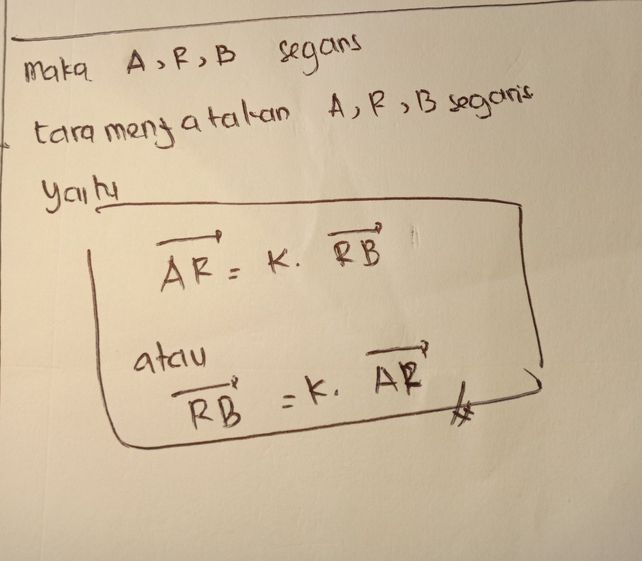 maka A, R, B segaris
cara menyatakan A, R, B segaris
yaitu
AR = K. RB
atau
RB = K. AR